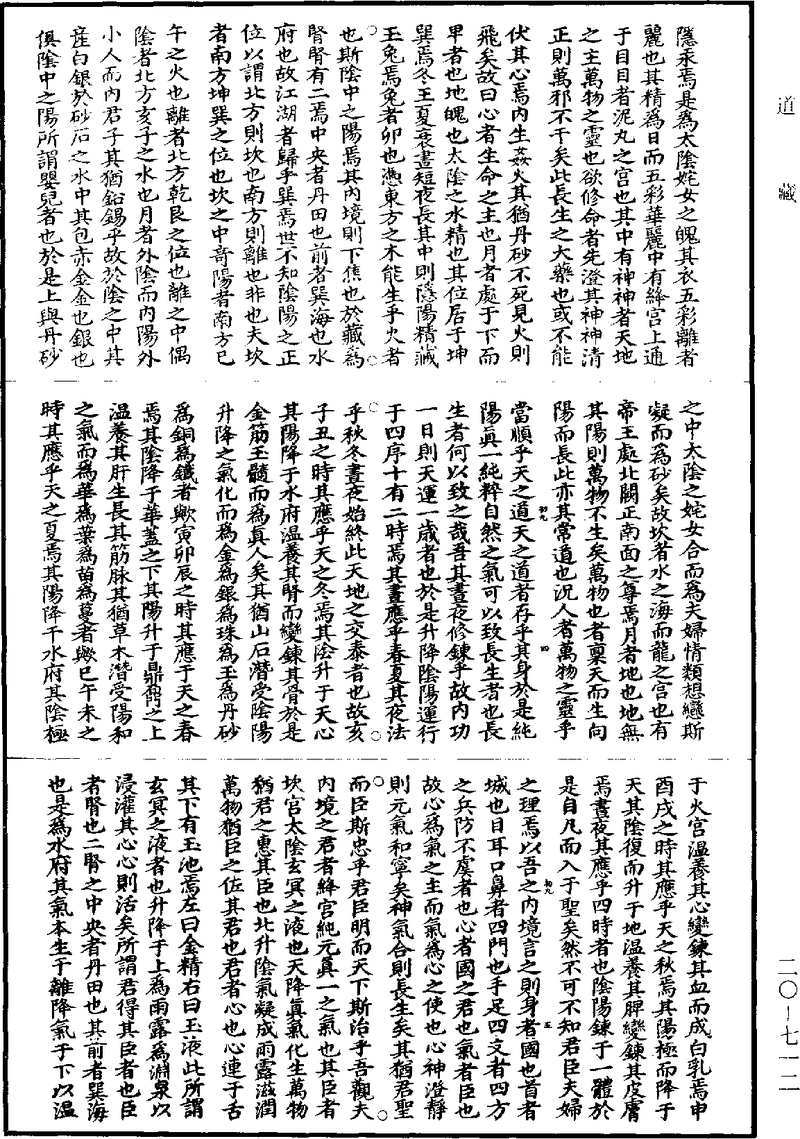 道藏
隱汞焉是爲太陰姹女之魄其衣五彩離者
麗也其精爲日而五彩華麗中有絳宮上通
于目目者泥丸之宮也其中有神神者天地
之主萬物之靈也欲修命者先澄其神神清
正則萬邪不干矣此長生之大藥也或不能
伏其心焉内生姦火其猶丹砂不死見火則
飛矣故曰心者生命之主也月者處于下而
卑者也地魄也太陰之水精也其位居于坤
巽焉冬王夏衰晝短夜長其中則隱陽精藏
玉兔焉兔者卯也憑東方之木能生乎火者
也斯陰中之陽焉其内境則下焦也於藏爲
腎腎有二焉中央者丹田也前者巽海也水
府也故江湖者歸乎巽焉世不知陰陽之正
位以謂北方則坎也南方則離也非也夫坎
者南方坤巽之位也坎之中奇陽者南方巳
午之火也離者北方乾艮之位也離之中偶
陰者北方亥子之水也月者外陰而内陽外
小人而内君子其猶鉛錫乎故於陰之中其
産白銀於砂石之水中其包赤金金也銀也
俱陰中之陽所謂嬰兒者也於是上與丹砂
之中太陰之姹女合而爲夫婦情類想戀斯
凝而爲砂矣故坎者水之海而龍之宮也有
帝王處北闕正南面之尊焉月者地也地無
其陽則萬物不生矣萬物也者稟天而生向
陽而長此亦其常道也況人者萬物之靈乎
當順乎天之道天之道者存乎其身於是純
陽眞一純粹自然之氣可以致長生者也長
生者何以致之哉吾其晝夜修鍊乎故内功
一日則天運一歳者也於是升降陰陽運行
于四序十有二時焉其晝應乎春夏其夜法
乎秋冬晝夜始終此天地之交泰者也故亥
子丑之時其應乎天之冬焉其陰升于天心
其陽降于水府温養其腎而變鍊其骨於是
金筋玉髓而爲真人矣其猶山石潛受陰陽
升降之氣化而爲金爲銀爲珠爲玉爲丹砂
爲銅爲鐵者歟寅卯辰之時其應于天之春
焉其陰降于華蓋之下其陽升于鼎臍之上
温養其肝生長其筋脉其猶草木潛受陽和
之氣而爲華爲葉爲苗爲蔓者歟巳午未之
時其應乎天之夏焉其陽降于水府其陰極
于火宮温養其心變鍊其血而成白乳焉申
酉戌之時其應乎天之秋焉其陽極而降于
天其陰復而升于地温養其脾變鍊其皮膚
焉晝夜其應乎四時者也陰陽鍊于一體於
是自凡而入于聖矣然不可不知君臣夫婦
之理焉以吾之内境言之則身者國也首者
城也目耳口鼻者四門也手足四支者四方
之兵防不虞者也心者國之君也氣者臣也
故心爲氣之主而氣爲心之使也心神澄靜
則元氣和寧矣神氣合則長生矣其猶君聖
而臣斯忠乎君臣明而天下斯治乎吾觀夫
内境之君者絳宮純元眞一之氣也其臣者
坎宮太陰玄冥之液也天降眞氣化生萬物
猶君之惠其臣也比升陰氣凝成雨露滋潤
萬物猶臣之佐其君也君者心也心連于舌
其下有玉池焉左曰金精右曰玉液此所謂
玄冥之液者也升降于上爲雨露爲淵泉以
浸灌其心心則活矣所謂君得其臣者也臣
者腎也二腎之中央者丹田也其前者巽海
也是爲水府其氣本生于離降氣于下以温
初九
四
初九
五
二〇—七一二